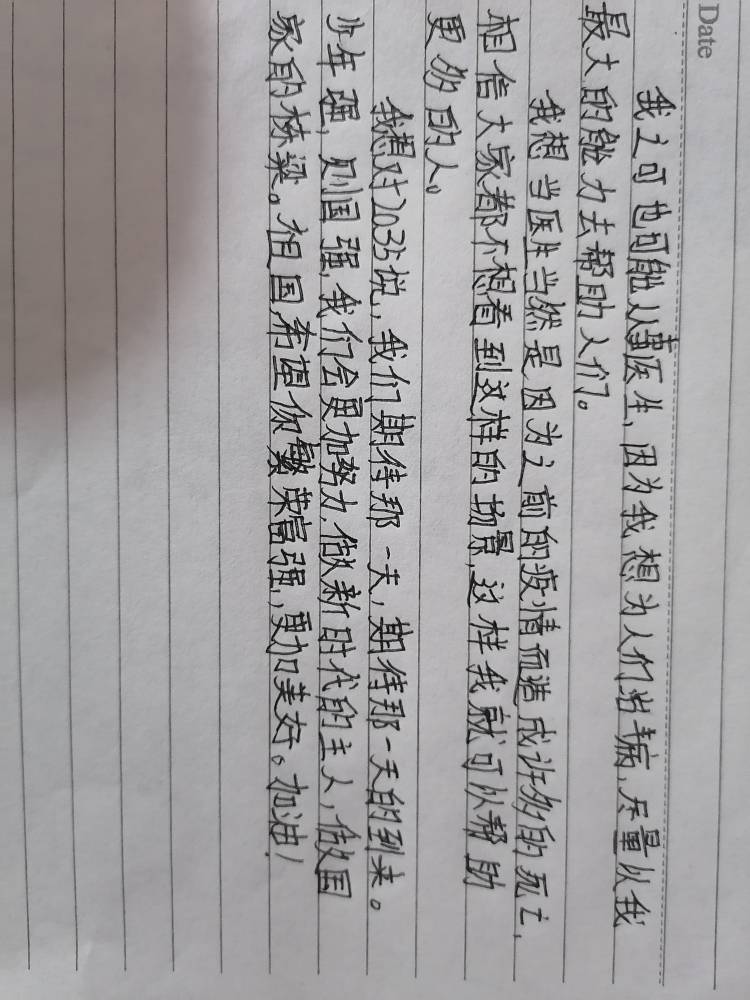 Date
我之可也可能从事医生,因为我想为人们治病,尽量以我
最大的能力去帮助人们。
我想当医生当然是因为之前的疫情而造成许多的死亡,
相信大家都不想看到这样的场景,这样我就可以帮助
更多的人。
我想对2035说,我们期待那一天,期待那一天的到来。
少年强,则国强,我们会更加努力,做新时代的主人,做国
家的栋梁。祖国,希望你繁荣富强,更加美好。加油!